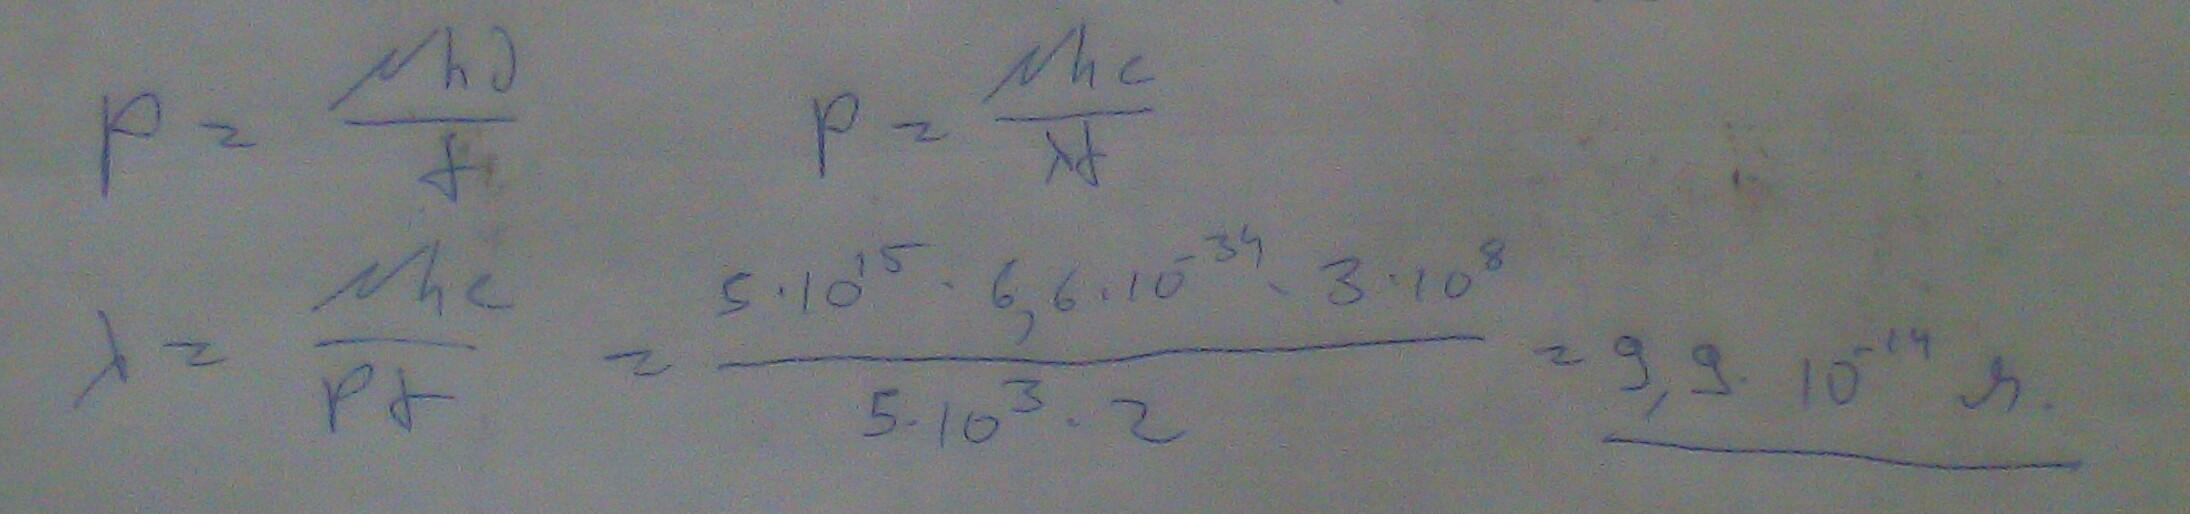 P = Nhν/t P = Nhc/λt
λ = Nhc/Pt = 5·10^15 · 6,6·10^-34 · 3·10^8 / 5·10^3 · 2 = 9,9 · 10^-14 м.